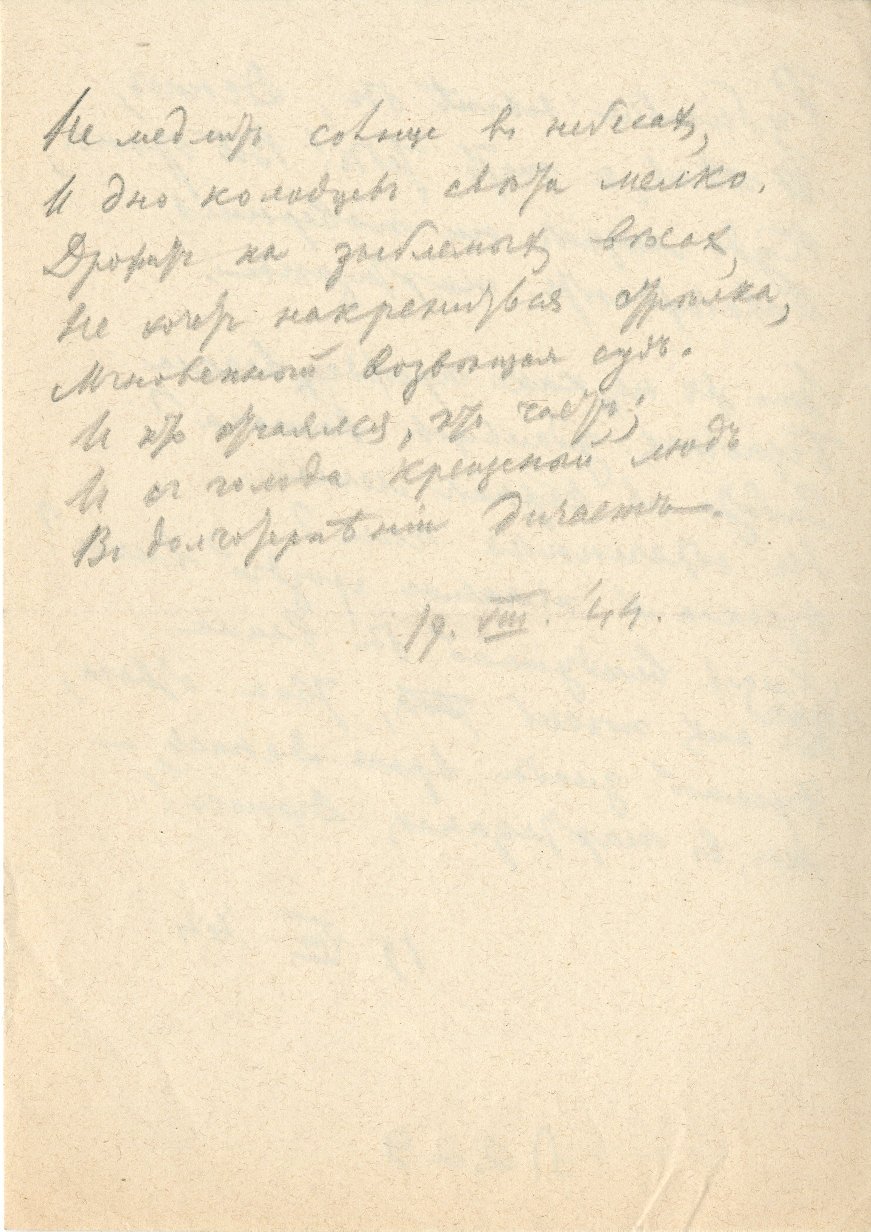 Не медлитъ солнце въ небесахъ,
И дно колодцевъ свѣта мелко.
Дрожитъ на зыблемыхъ вѣсахъ,
Не хочетъ накрениться стрѣлка,
Мгновенный возвѣщая судъ.
И кто отчаялся, кто чаетъ;
И съ голода крещеный людъ
Въ долготерпѣніи дичаетъ.
19. VIII. '44.